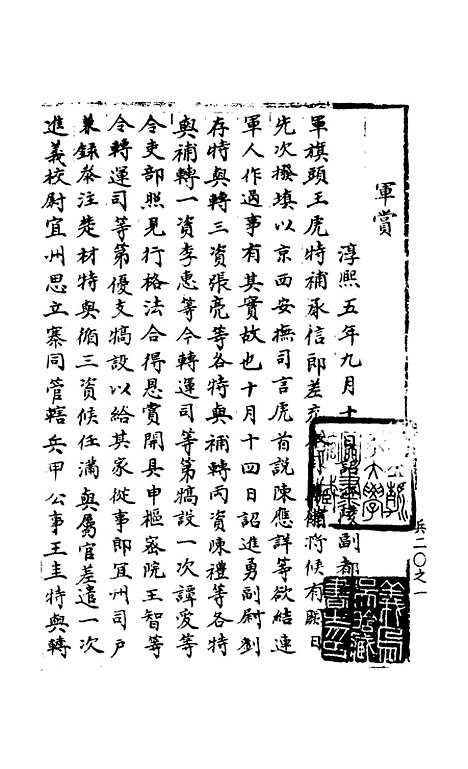 軍賞
淳熙五年九月十日詔副都
軍旗頭王虎特補承信郎差充將候有闕日
先次撥填以京西安撫司言虎首說陳應詳等欲結連
軍人作過事有其實故也十月十四日詔進勇副尉劉
存特與轉三資張亮等各特與補轉兩資陳禮等各特
與補轉一資李惠等令轉運司等第犒設一次譚愛等
令吏部照見行格法合得恩賞開具申樞密院王智等
令轉運司等第優支犒設以給其家從事郎宜州司戶
兼錄參注楚材特與循三資候任滿與屬官差遣一次
進義校尉宜州思立寨同管轄兵甲公事王圭特與轉
兵二〇之一